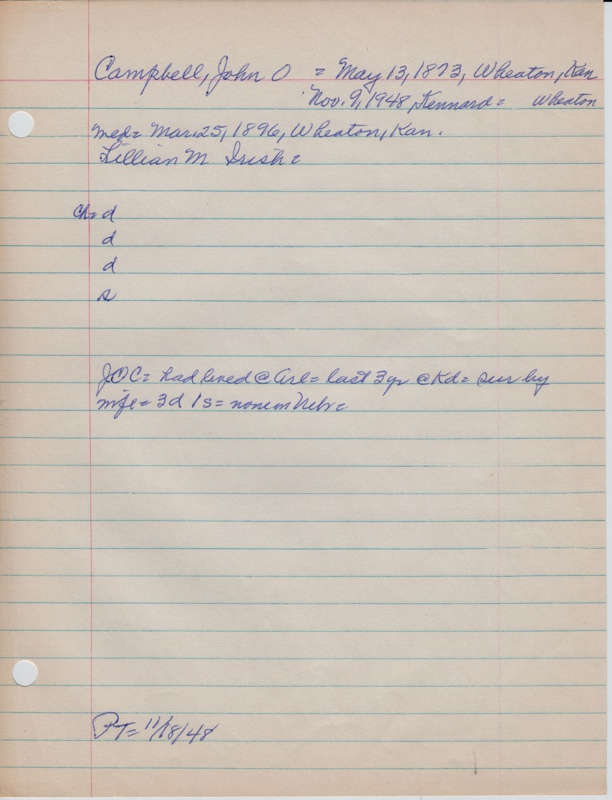 Campbell, John O = May 13, 1873, Wheaton, Kan
Nov. 9, 1948, Kennard = Wheaton
med = Mar. 25, 1896, Wheaton, Kan.
Lillian M Irish =
Ch = d
d
d
s
JOC = had lived @ Arl = last 3 yr @ Kd = sur by
wife = 3d 1s = none in Nebr =
PT = 11/18/48